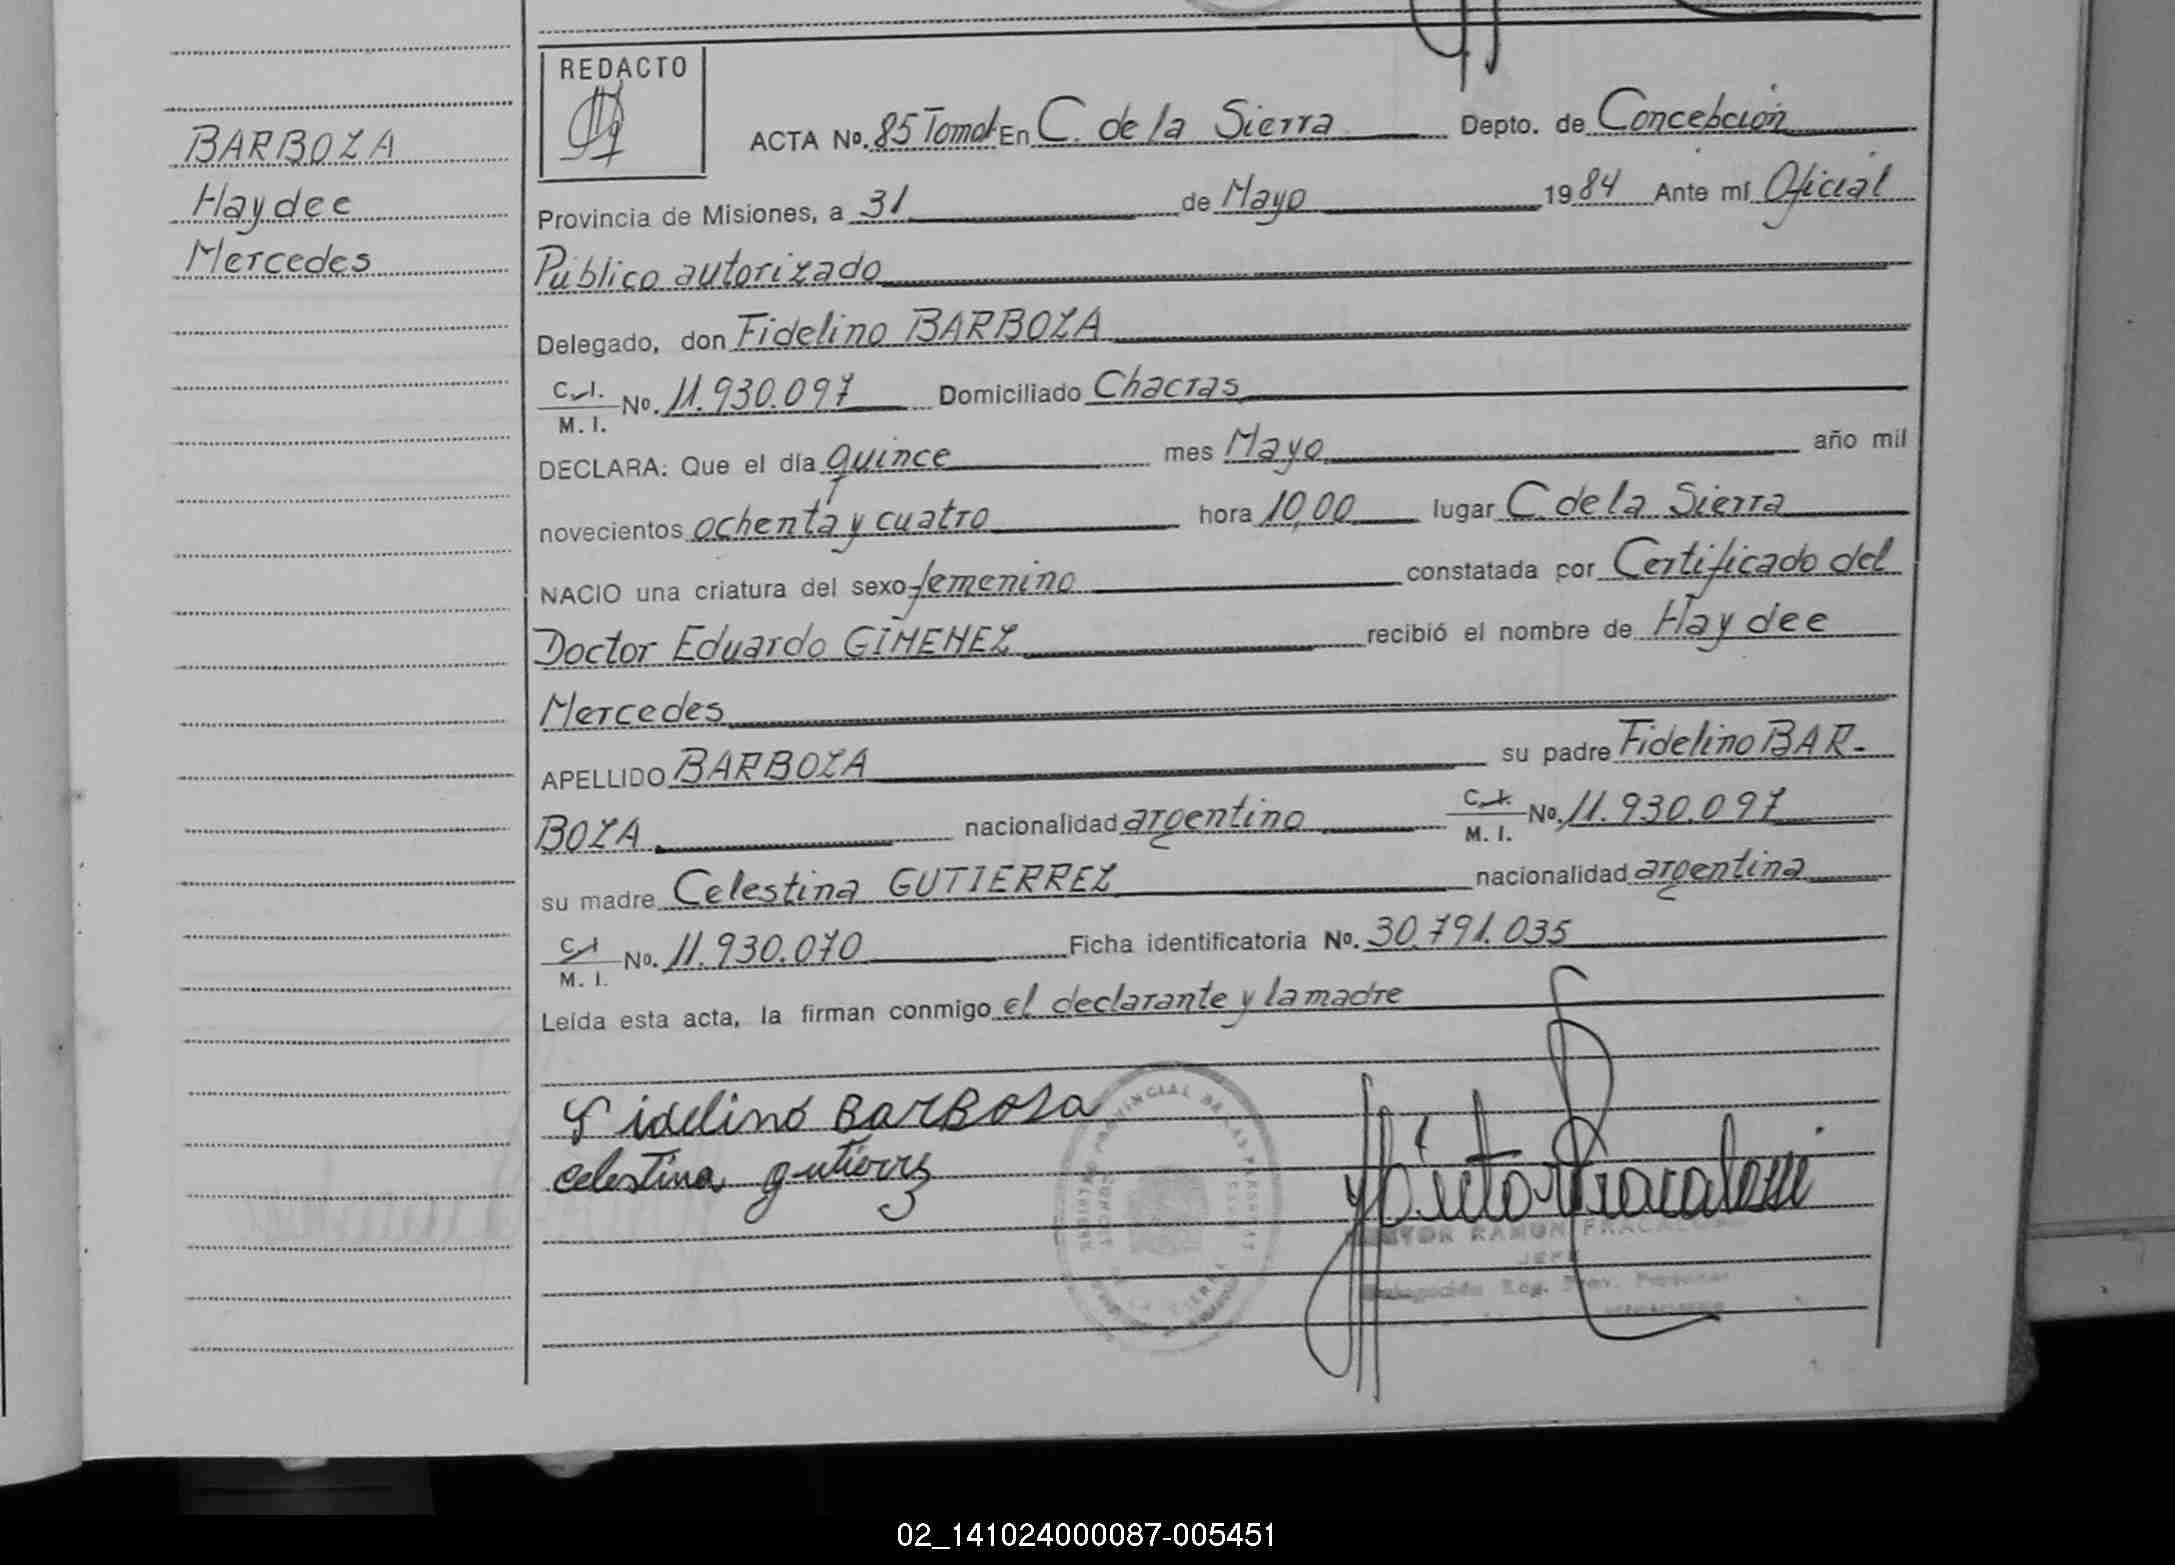 REDACTO
BARBOZA
Haydee
Mercedes
ACTA No. 85 Tomo I En C. de la Sierra Depto. de Concebción
Provincia de Misiones, a 31 de Mayo 1984 Ante mí Oficial
Público autorizado
Delegado, don Fidelino BARBOZA
C. I.
M. I. No. 11.930.097 Domiciliado Chacras
DECLARA: Que el día quince mes Mayo año mil
novecientos ochenta y cuatro hora 10,00 lugar C. de la Sierra
NACIO una criatura del sexo femenino constatada por Certificado del
Doctor Eduardo GIMENEZ recibió el nombre de Haydee
Mercedes
APELLIDO BARBOZA su padre Fidelino BAR-
BOZA nacionalidad argentino C. I. M. I. No. 11.930.097
su madre Celestina GUTIERREZ nacionalidad argentina
C. I. M. I. No. 11.930.070 Ficha identificatoria No. 30.791.035
Leída esta acta, la firman conmigo el declarante y la madre
Fidelino BarBoza
Celestina gutierrez
RAMON
JEFE
02_141024000087-005451